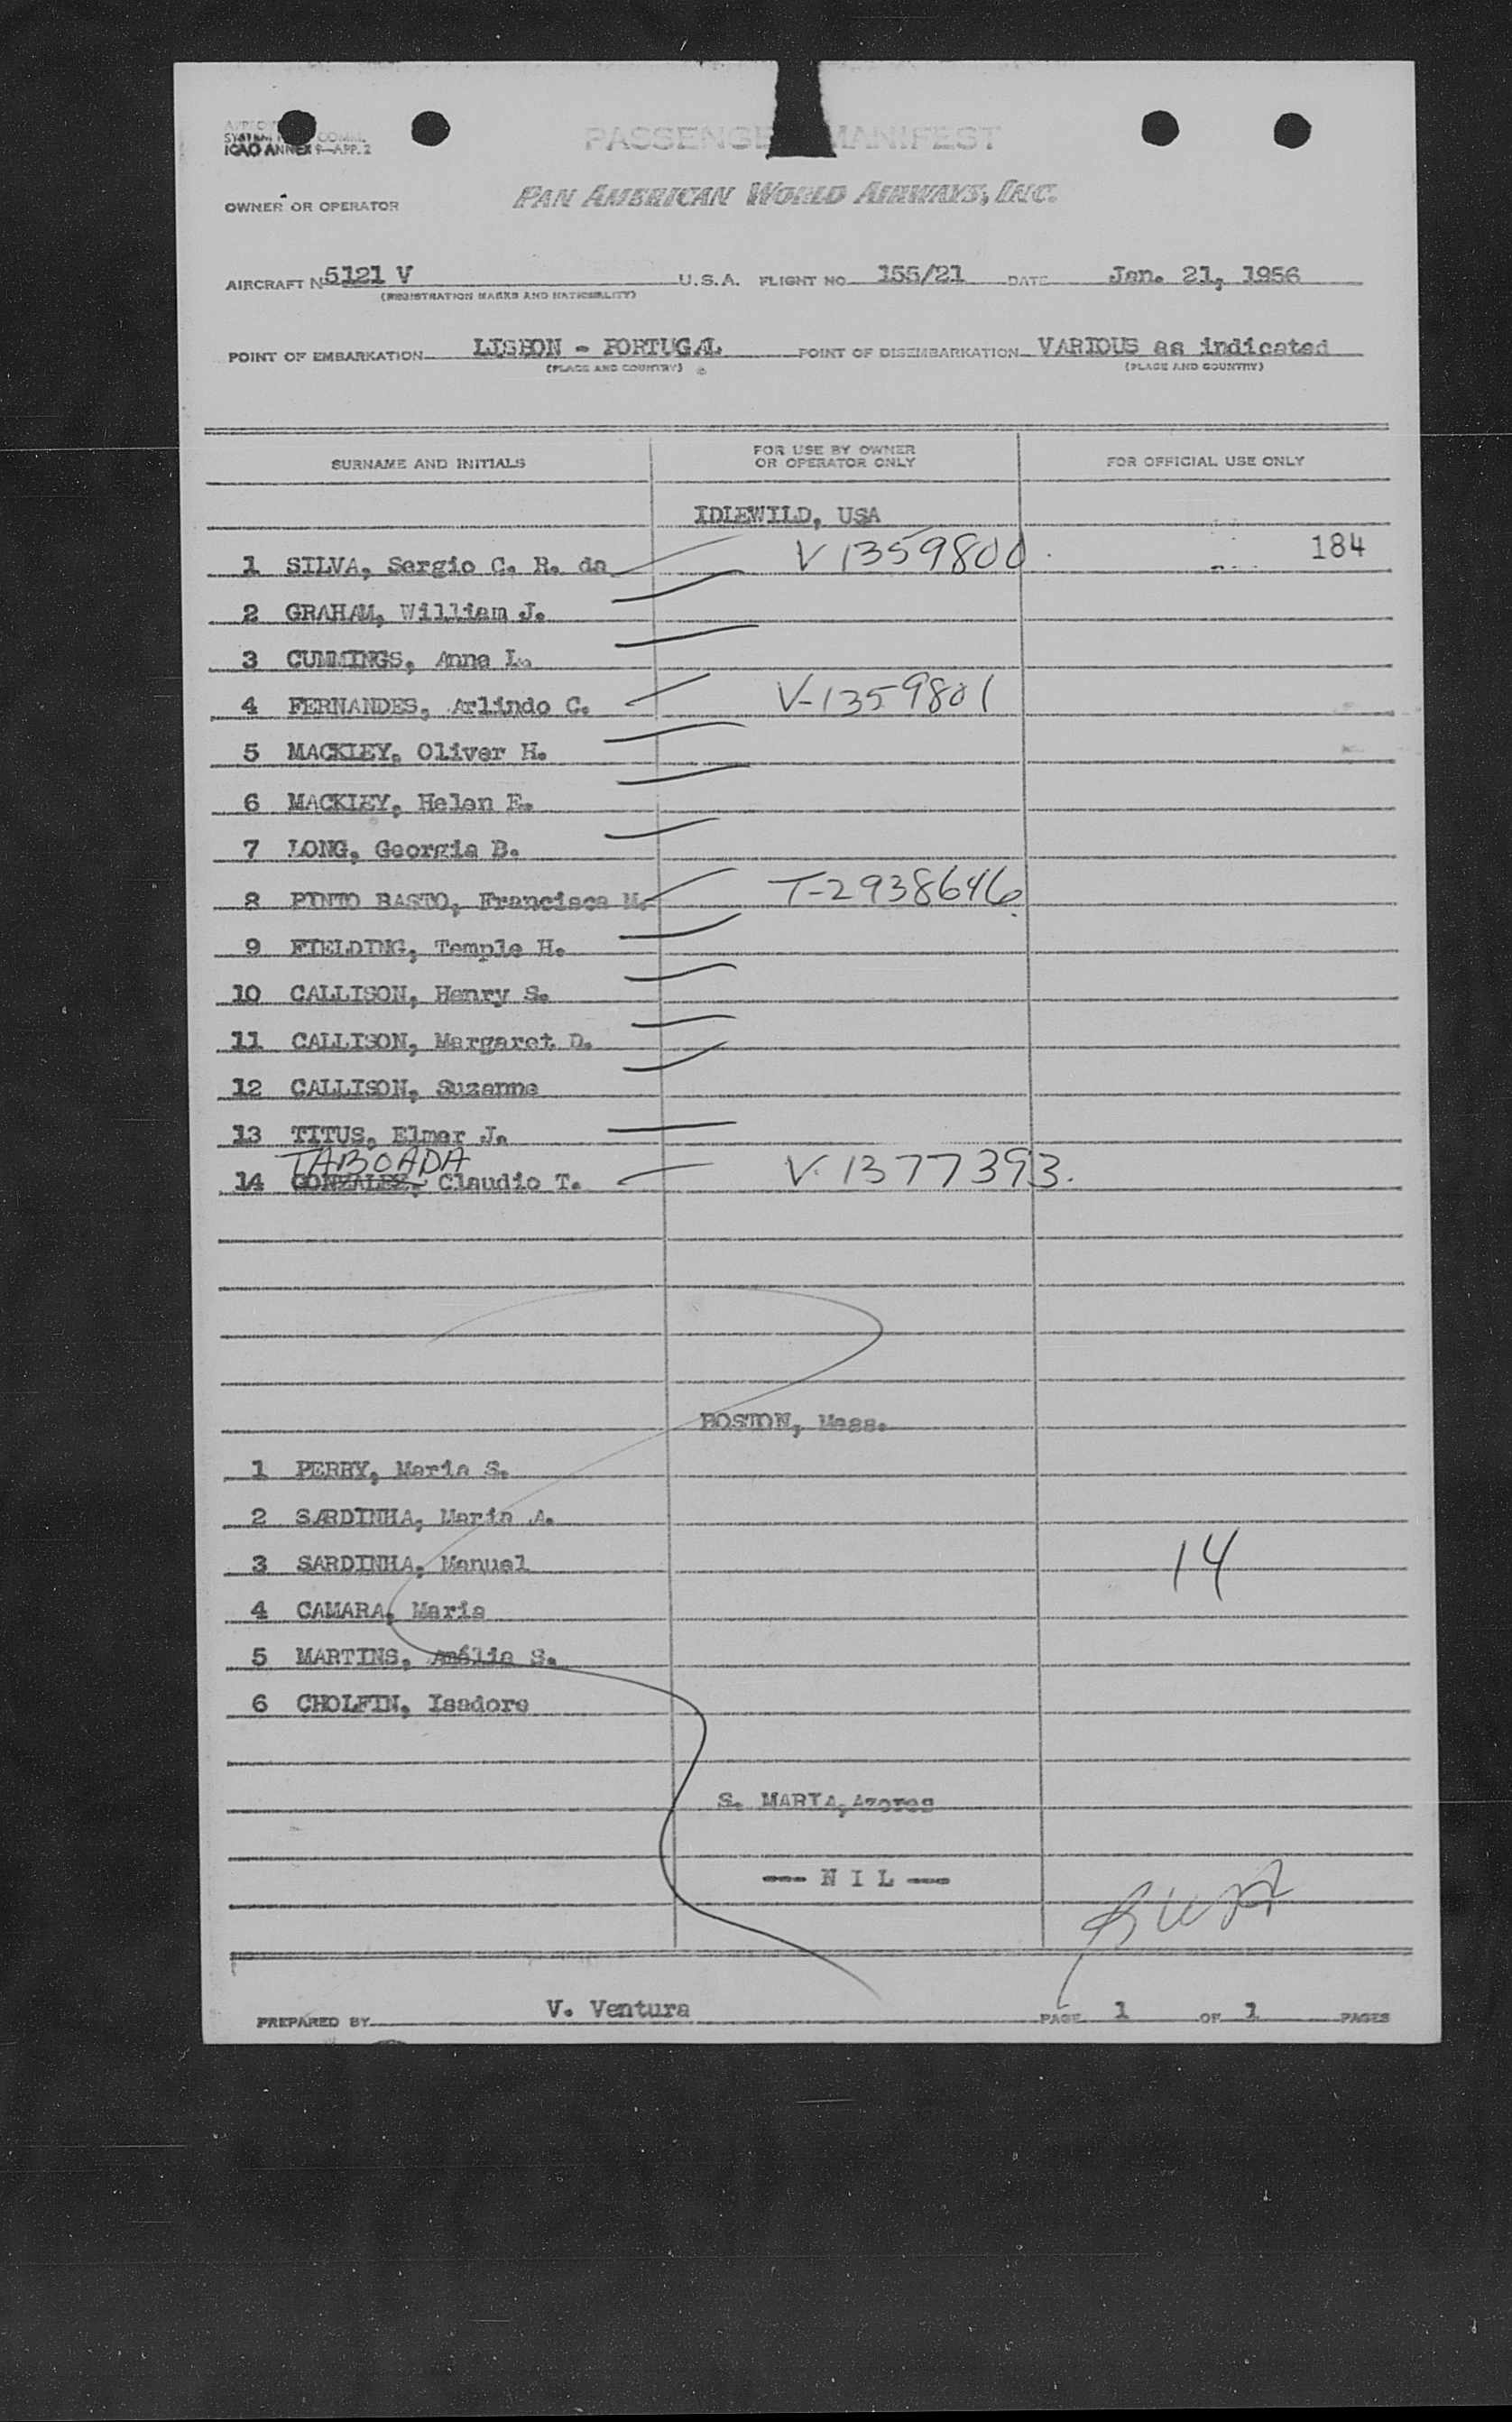 ICAO ANNEX 9—APP. 2
PASSENGE MANIFEST
OWNER OR OPERATOR PAN AMERICAN WORLD AIRWAYS, INC.
AIRCRAFT N 5121 V U.S.A. FLIGHT NO 155/21 DATE Jan. 21, 1956
(REGISTRATION MARKS AND NATIONALITY)
POINT OF EMBARKATION LISBON - PORTUGAL POINT OF DISEMBARKATION VARIOUS as indicated
(PLACE AND COUNTRY) (PLACE AND COUNTRY)
SURNAME AND INITIALS FOR USE BY OWNER OR OPERATOR ONLY FOR OFFICIAL USE ONLY
IDLEWILD, USA
1 SILVA, Sergio C. R. da V 1359800 184
2 GRAHAM, William J.
3 CUMMINGS, Anna L.
4 FERNANDES, Arlindo C. V-1359801
5 MACKLEY, Oliver H.
6 MACKLEY, Helen E.
7 LONG, Georgia B.
8 PINTO BASTO, Francisca M. T-2938646
9 FIELDING, Temple H.
10 CALLISON, Henry S.
11 CALLISON, Margaret D.
12 CALLISON, Suzanne
13 TITUS, Elmer J.
TABOADA
14 GONZALEZ, Claudio T. V. 1377393.
BOSTON, Mass.
1 PERRY, Maria S.
2 SARDINHA, Maria A.
3 SARDINHA, Manuel 14
4 CAMARA, Maria
5 MARTINS, Amélia S.
6 CHOLFIN, Isadore
S. MARIA, Azores
--- N I L ---
PREPARED BY V. Ventura PAGE 1 OF 1 PAGES